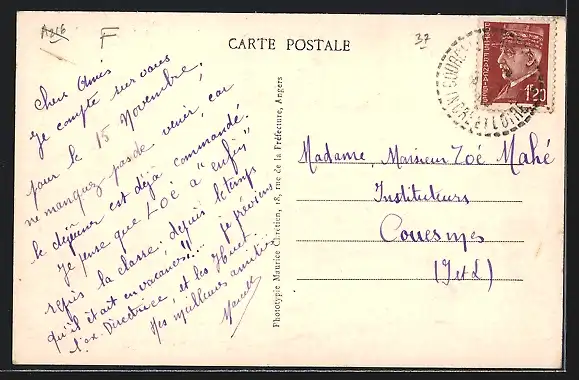 A216
F
37
CARTE POSTALE
Chers Amis
Je compte sur vous
pour le 15 Novembre,
ne manquez pas de venir, car
le déjeuner est déjà commandé.
Je pense que Zoé a "enfin"
repris la classe. depuis le temps
qu'il était en vacances!!... je préviens
l'ex. Directrice, et les
Mes meilleures amitiés
Marcelle
Phototypie Maurice Chrétien, 18, rue de la Préfecture, Angers
1F20
INDRE ET LOIRE
Madame, Monsieur Zoé Mahé
Instituteurs
Couesmes
(I et L)